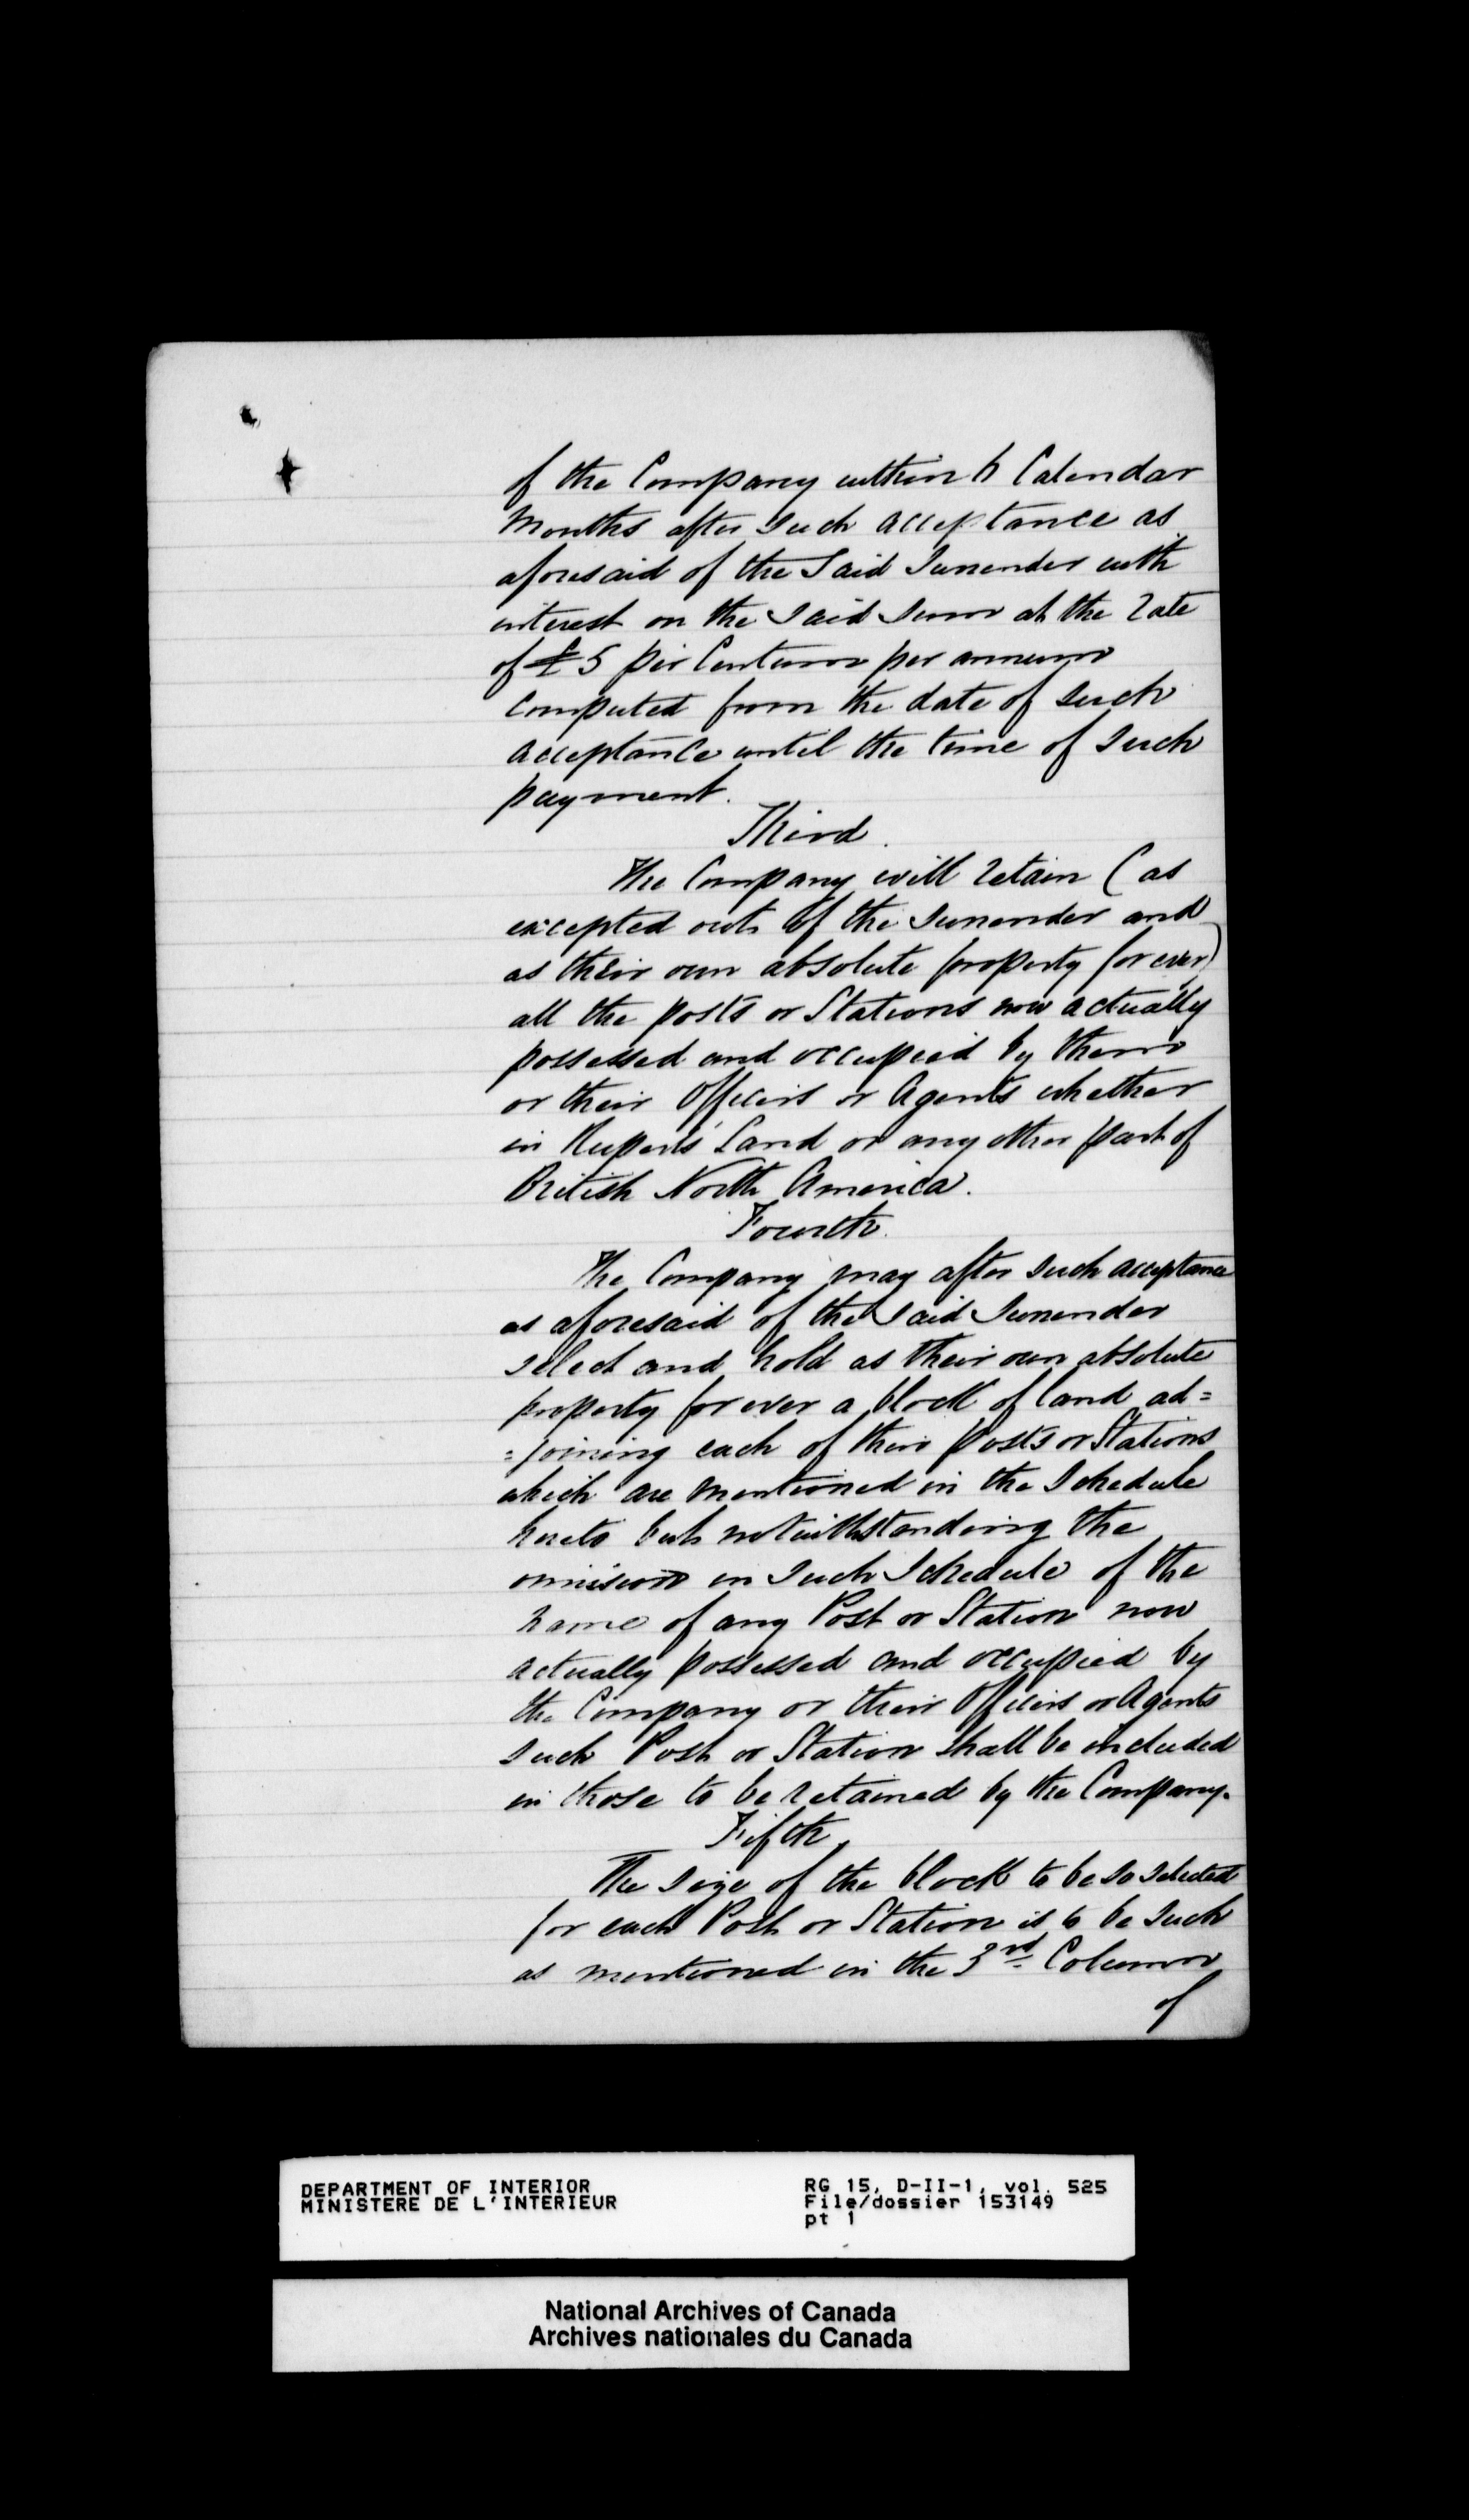 of the Company within 6 Calendar
Months after such acceptance as
aforesaid of the said Surrender with
interest on the said sum at the rate
of £5 per Centum per annum
computed from the date of such
acceptance until the time of such
payment.
Third.
The Company will retain (as
excepted out of the surrender and
as their own absolute property for ever)
all the posts or Stations now actually
possessed and occupied by them
or their Officers or Agents whether
in Ruperts' Land or any other part of
British North America.
Fourth.
The Company may after such acceptance
as aforesaid of the said Surrender
select and hold as their own absolute
property for ever a block of land ad=
=joining each of their posts or Stations
which are mentioned in the Schedule
hereto but notwithstanding the
omission in such Schedule of the
name of any Post or Station now
actually possessed and occupied by
the Company or their Officers or Agents
such Post or Station shall be included
in those to be retained by the Company.
Fifth.
The size of the block to be so selected
for each Post or Station is to be such
as mentioned in the 3rd Column
of
DEPARTMENT OF INTERIOR
MINISTERE DE L'INTERIEUR
RG 15, D-II-1, vol. 525
File/dossier 153149
pt 1
National Archives of Canada
Archives nationales du Canada